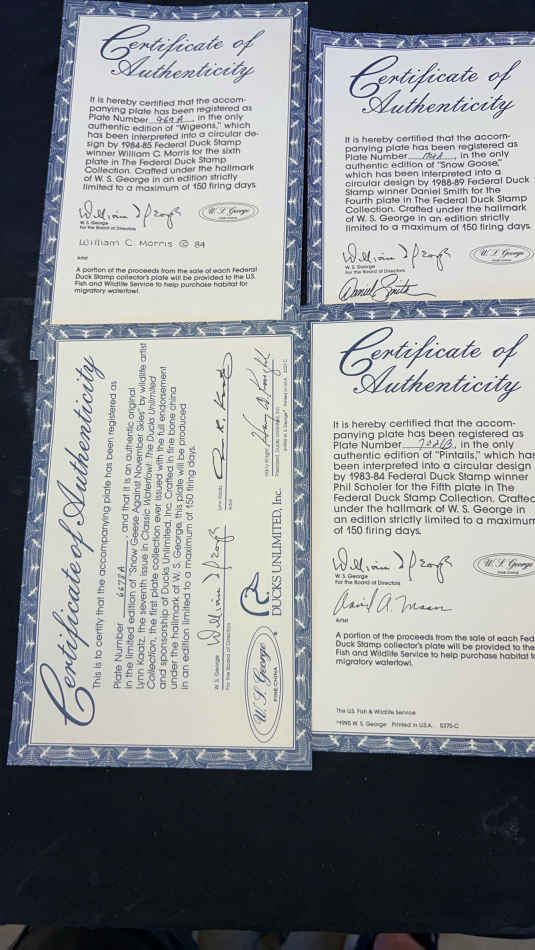 Certificate of
Authenticity
It is hereby certified that the accom-
panying plate has been registered as
Plate Number 969A, in the only
authentic edition of "Wigeons," which
has been interpreted into a circular de-
sign by 1984-85 Federal Duck Stamp
winner William C. Morris for the sixth
plate in The Federal Duck Stamp
Collection. Crafted under the hallmark
of W. S. George in an edition strictly
limited to a maximum of 150 firing days.
W. S. George
For the Board of Directors
W. S. George
FINE CHINA
William C. Morris © 84
Artist
A portion of the proceeds from the sale of each Federal
Duck Stamp collector's plate will be provided to the U.S.
Fish and Wildlife Service to help purchase habitat for
migratory waterfowl.
Certificate of
Authenticity
It is hereby certified that the accom-
panying plate has been registered as
Plate Number, in the only
authentic edition of "Snow Goose,"
which has been interpreted into a
circular design by 1988-89 Federal Duck
Stamp winner Daniel Smith for the
Fourth plate in The Federal Duck Stamp
Collection. Crafted under the hallmark
of W. S. George in an edition strictly
limited to a maximum of 150 firing days.
W. S. George
For the Board of Directors
W. S. George
FINE CHINA
Daniel Smith
Certificate of Authenticity
This is to certify that the accompanying plate has been registered as
Plate Number 6678A, and that it is an authentic original
in the limited edition of "Snow Geese Against November Skies" by wildlife artist
Lynn Kaatz, the seventh issue in Classic Waterfowl: The Ducks Unlimited
Collection, the first plate collection ever issued with the full endorsement
and sponsorship of Ducks Unlimited, Inc. Crafted in fine bone china
under the hallmark of W. S. George, this plate will be produced
in an edition limited to a maximum of 150 firing days.
W. S. George
For the Board of Directors
Lynn Kaatz
Artist
W. S. George
FINE CHINA
DUCKS UNLIMITED, Inc.
Certificate of
Authenticity
It is hereby certified that the accom-
panying plate has been registered as
Plate Number, in the only
authentic edition of "Pintails," which has
been interpreted into a circular design
by 1983-84 Federal Duck Stamp winner
Phil Scholer for the Fifth plate in The
Federal Duck Stamp Collection. Crafted
under the hallmark of W. S. George in
an edition strictly limited to a maximum
of 150 firing days.
W. S. George
For the Board of Directors
W. S. George
FINE CHINA
Artist
A portion of the proceeds from the sale of each Fed
Duck Stamp collector's plate will be provided to the
Fish and Wildlife Service to help purchase habitat fo
migratory waterfowl.
The U.S. Fish & Wildlife Service
W. S. George Printed in U.S.A. 5375-C